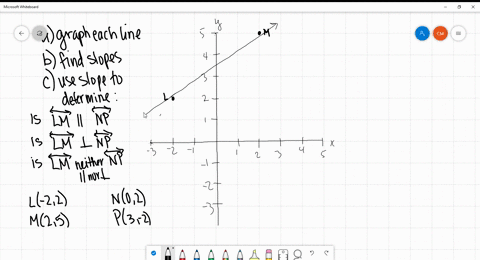 Microsoft Whiteboard
a) graph each line
b) find slopes
c) use slope to
determine:
Is LM || NP
Is LM ⊥ NP
is LM neither NP
|| nor ⊥
L(-2,2) N(0,2)
M(2,5) P(3,-2)
y
5
4
3
2
1
-3 -2 -1 1 2 3 4 5 x
-1
-2
-3
L
M
CM